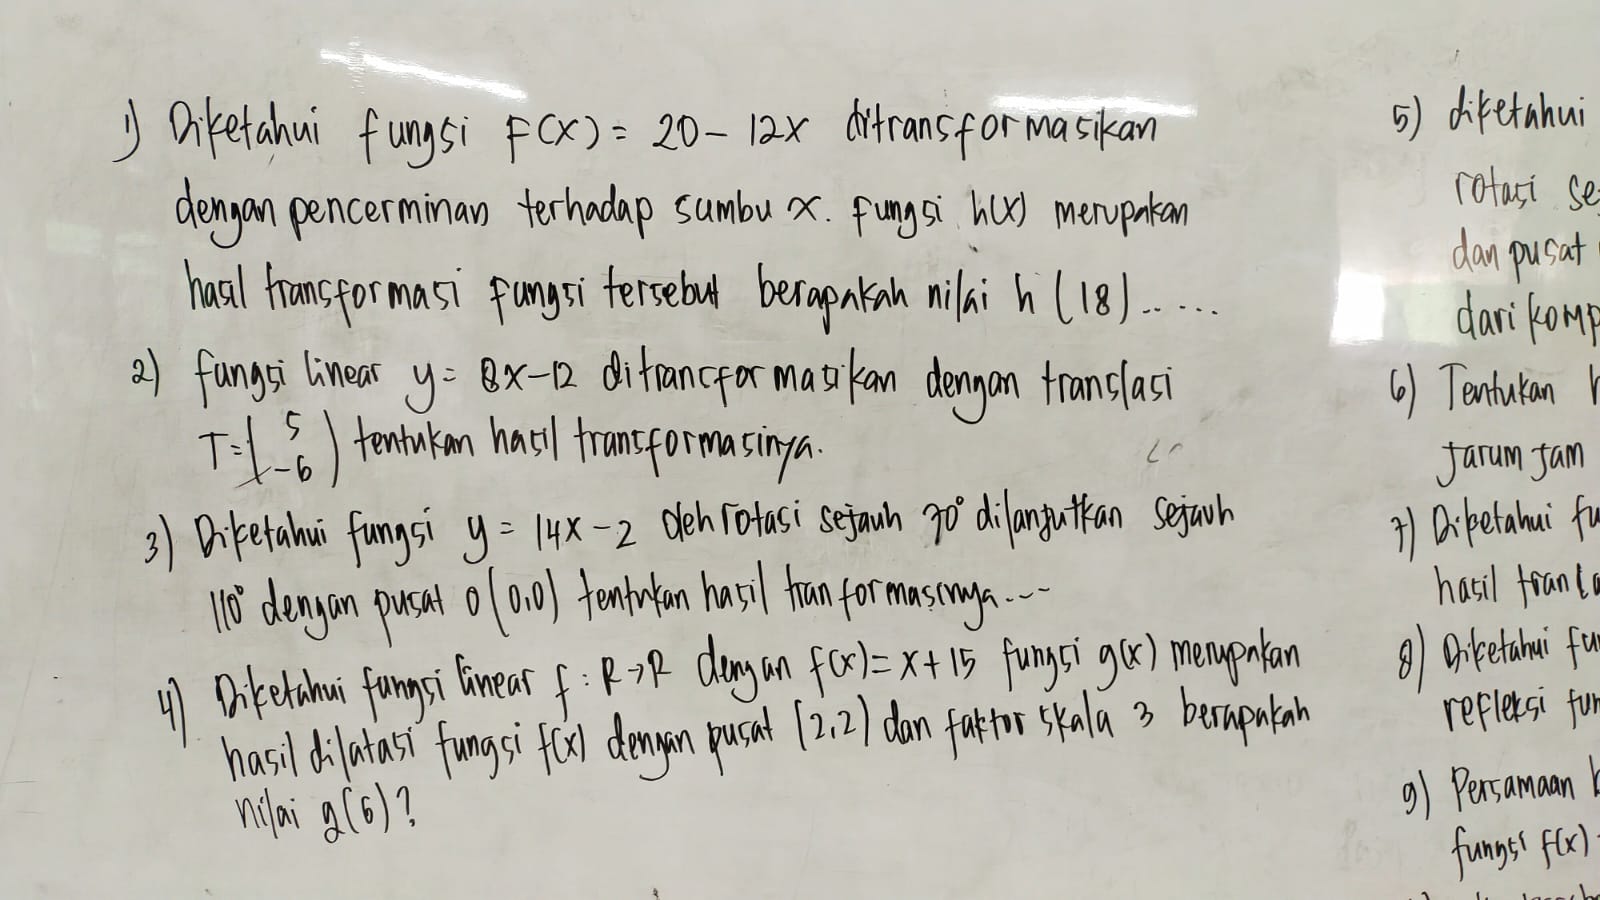 1) Diketahui fungsi F(x) = 20 - 12x ditransformasikan
dengan pencerminan terhadap sumbu x. fungsi h(x) merupakan
hasil transformasi fungsi tersebut berapakah nilai h (18) .....
2) fungsi linear y = 8x-12 ditransformasikan dengan translasi
T = ( 5
-6 ) tentukan hasil transformasinya.
3) Diketahui fungsi y = 14x - 2 oleh rotasi sejauh 70° dilanjutkan sejauh
110° dengan pusat O (0,0) tentukan hasil tranformasinya...
4) Diketahui fungsi linear f : R→R dengan f(x) = x + 15 fungsi g(x) merupakan
hasil dilatasi fungsi f(x) dengan pusat (2,2) dan faktor skala 3 berapakah
nilai g(6)?
5) diketahui
rotasi
dan pusat
dari
6) Tentukan
Jarum Jam
7) Diketahui
hasil
8) Diketahui
refleksi
9) Persamaan
fungsi f(x)